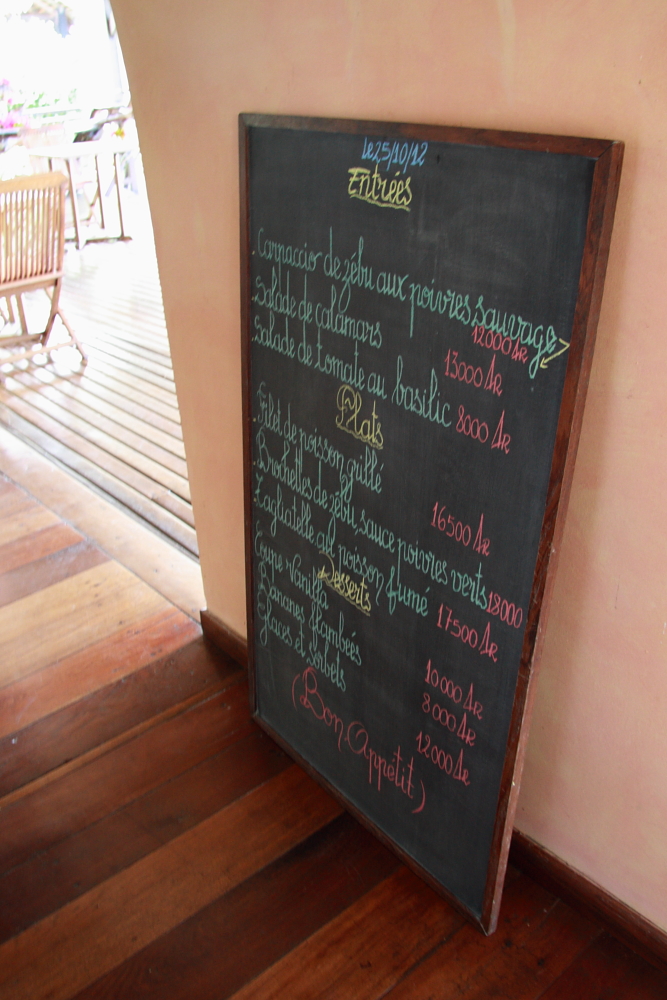 le 25/10/12
Entrées
. Carpaccio de zébu aux poivres sauvage
12000 Ar
. Salade de calamars 13000 Ar
. Salade de tomate au basilic 8000 Ar
Plats
. Filet de poisson grillé 16500 Ar
. Brochettes de zébu, sauce poivres verts 18000
. Tagliatelle au poisson fumé 17500 Ar
Desserts
. Coupe Vanilla 10000 Ar
. Bananes flambées 8000 Ar
. Glaces et sorbets 12000 Ar
(Bon Appétit)